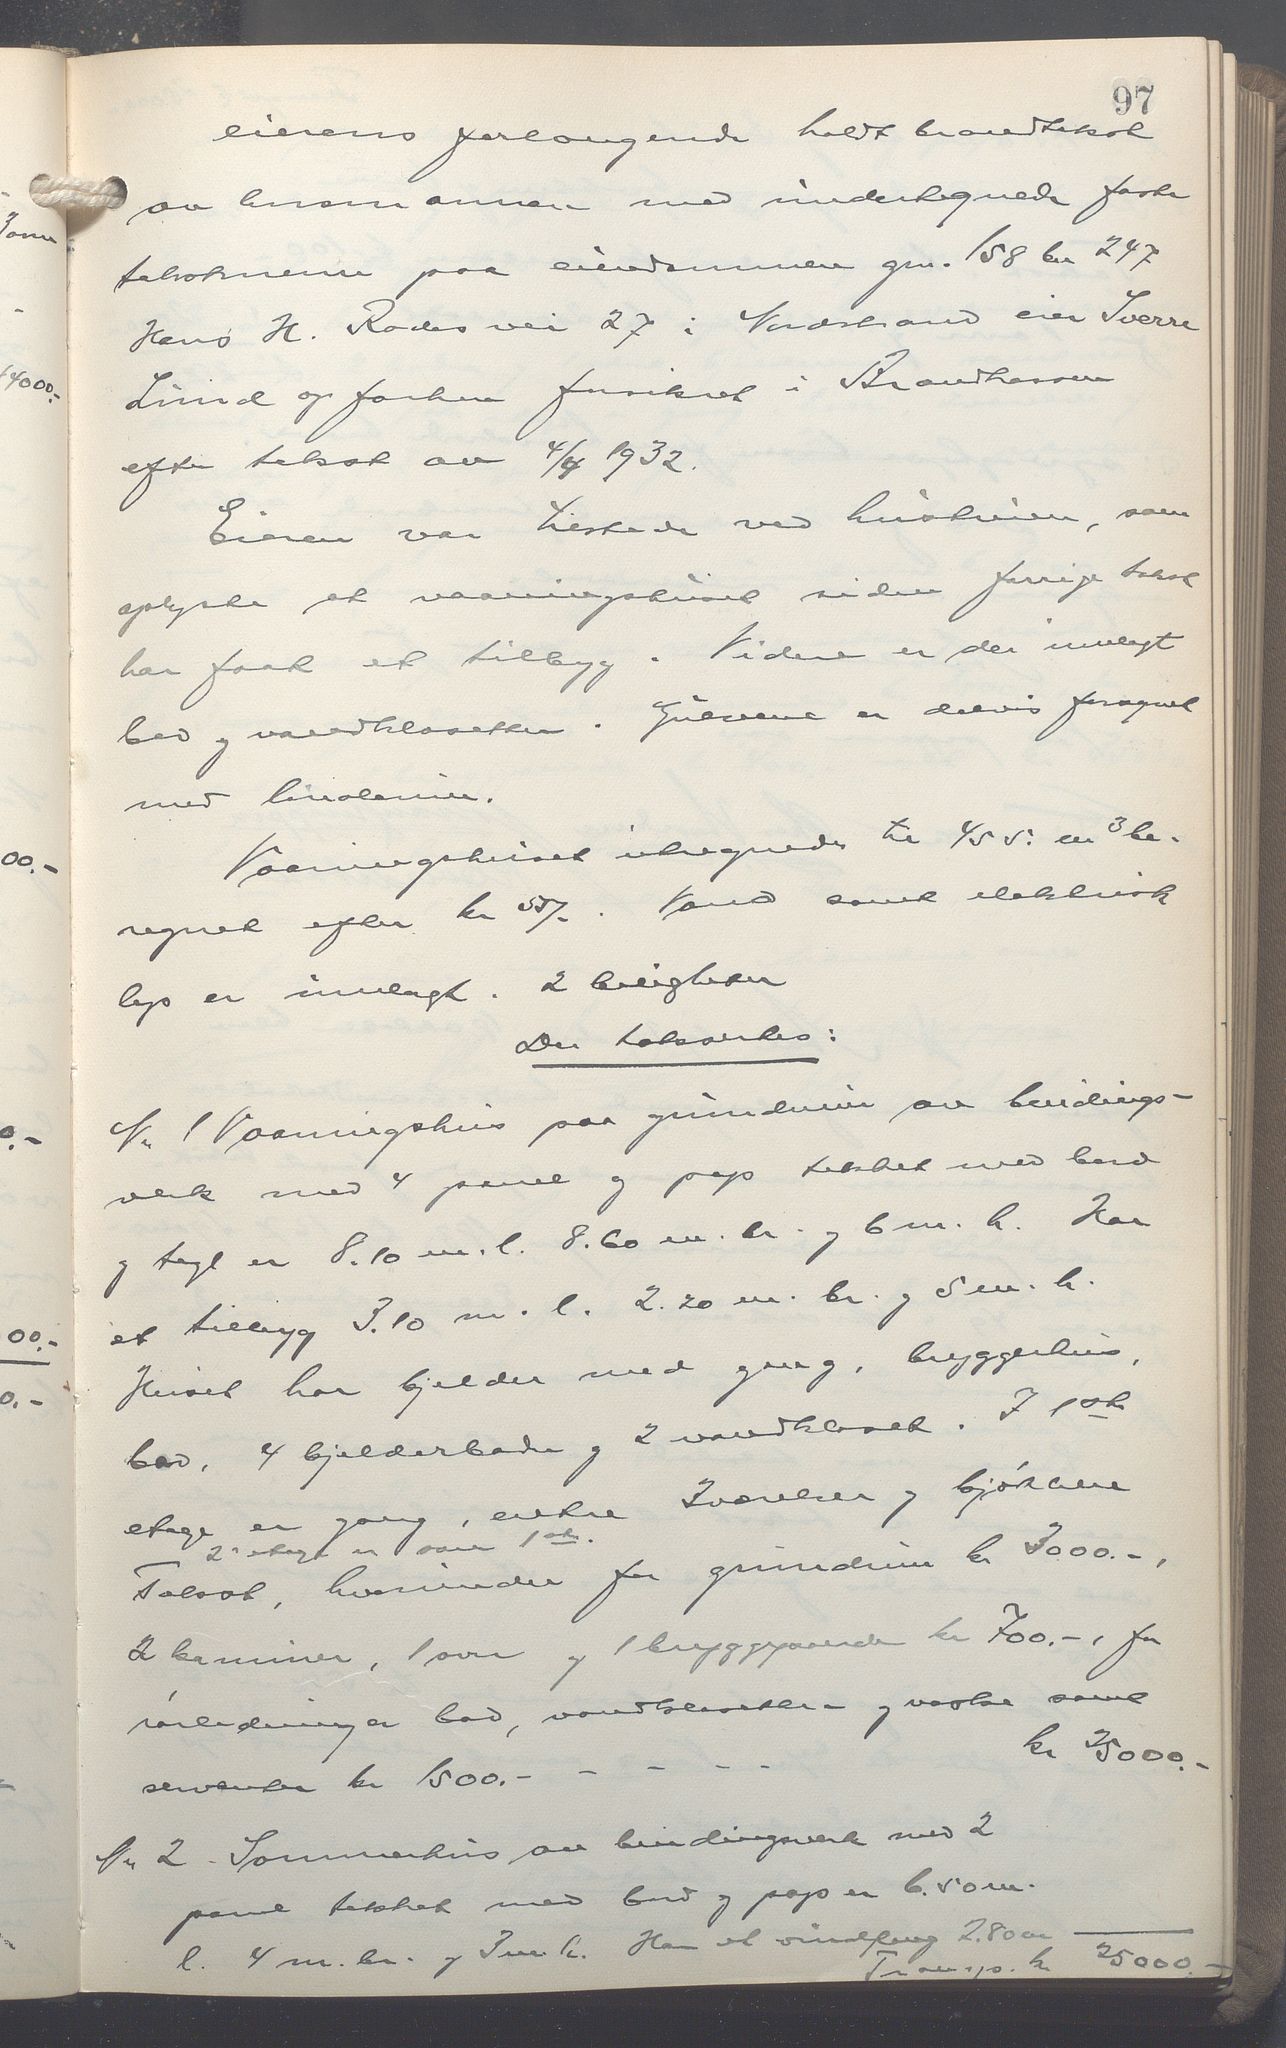 97
eierens forlangende holdt brandtakst
av lensmannen med undertegnede faste
takstmenn paa eiendommen gnr. 158 bnr 247
Hans H. Rodes vei 27 i Nordstrand eier Sverre
Lund og forhen forsikret i Brandkassen
efter takst av 4/4 1932.
Eieren var tilstede ved hustruen, som
oplyste at vaaningshuset siden forrige takst
har faat et tilbyg. Videre er der innlagt
bad og vandklosetter. Gulvene er delvis forsynet
med linoleum.
Vaaningshuset utregnedes til 455 m3 be-
regnet efter kr 55/-. Vand samt elektrisk
lys er innlagt. 2 leiligheter
Der taksertes:
Nr 1 Vaaningshus paa grundmur av bindings-
verk med 4 panel og pap tekket med bord
og tegl er 8.10 m. l. 8.60 m. br. og 6 m. h. Har
et tilbyg 3.10 m. l. 2.20 m. br. og 5 m. h.
Huset har kjelder med gang, bryggerhus,
bad, 4 kjelderboder og 2 vandklosett. I 1ste
etage er gang, entre 3 værelser og kjøkken
2 etage er som 1ste.
Takst, herunder for grundmur kr 3000.-,
2 kaminer, 1 ovn og 1 bryggepanne kr 700.-, for
rørledninger bad, vandklosetter og vaske samt
servanter kr 1500.- - - - - kr 25000.-
Nr 2. Sommerhus av bindingsverk med 2
panel tekket med bord og pap er 6.50 m.
l. 4 m. br. og 3 m h. Har et vindfang 2.80 m
Transp. kr 25000.-
3
44000.-
00.-
0.-
00.-
0.-